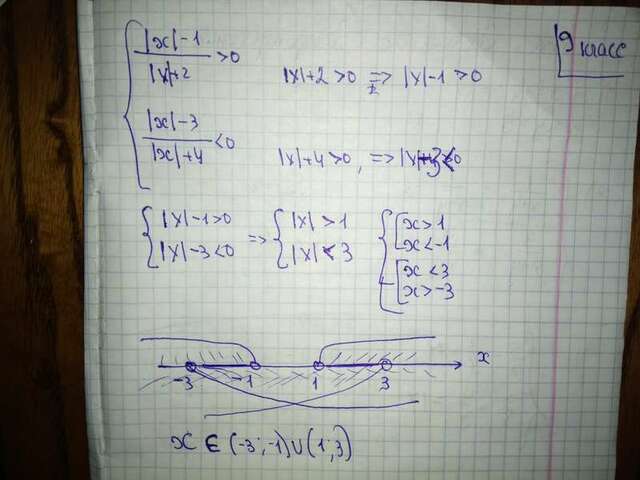 9 класс
{ |x|-1 / |x|+2 > 0    |x|+2>0 => |x|-1>0
{ |x|-3 / |x|+4 < 0    |x|+4>0, => |x|-3<0
{ |x|-1>0 => { |x|>1 { [ x>1
{ |x|-3<0    { |x|<3    [ x<-1
[ x<3
[ x>-3
-3 -1 1 3 x
x ∈ (-3;-1)∪(1;3)